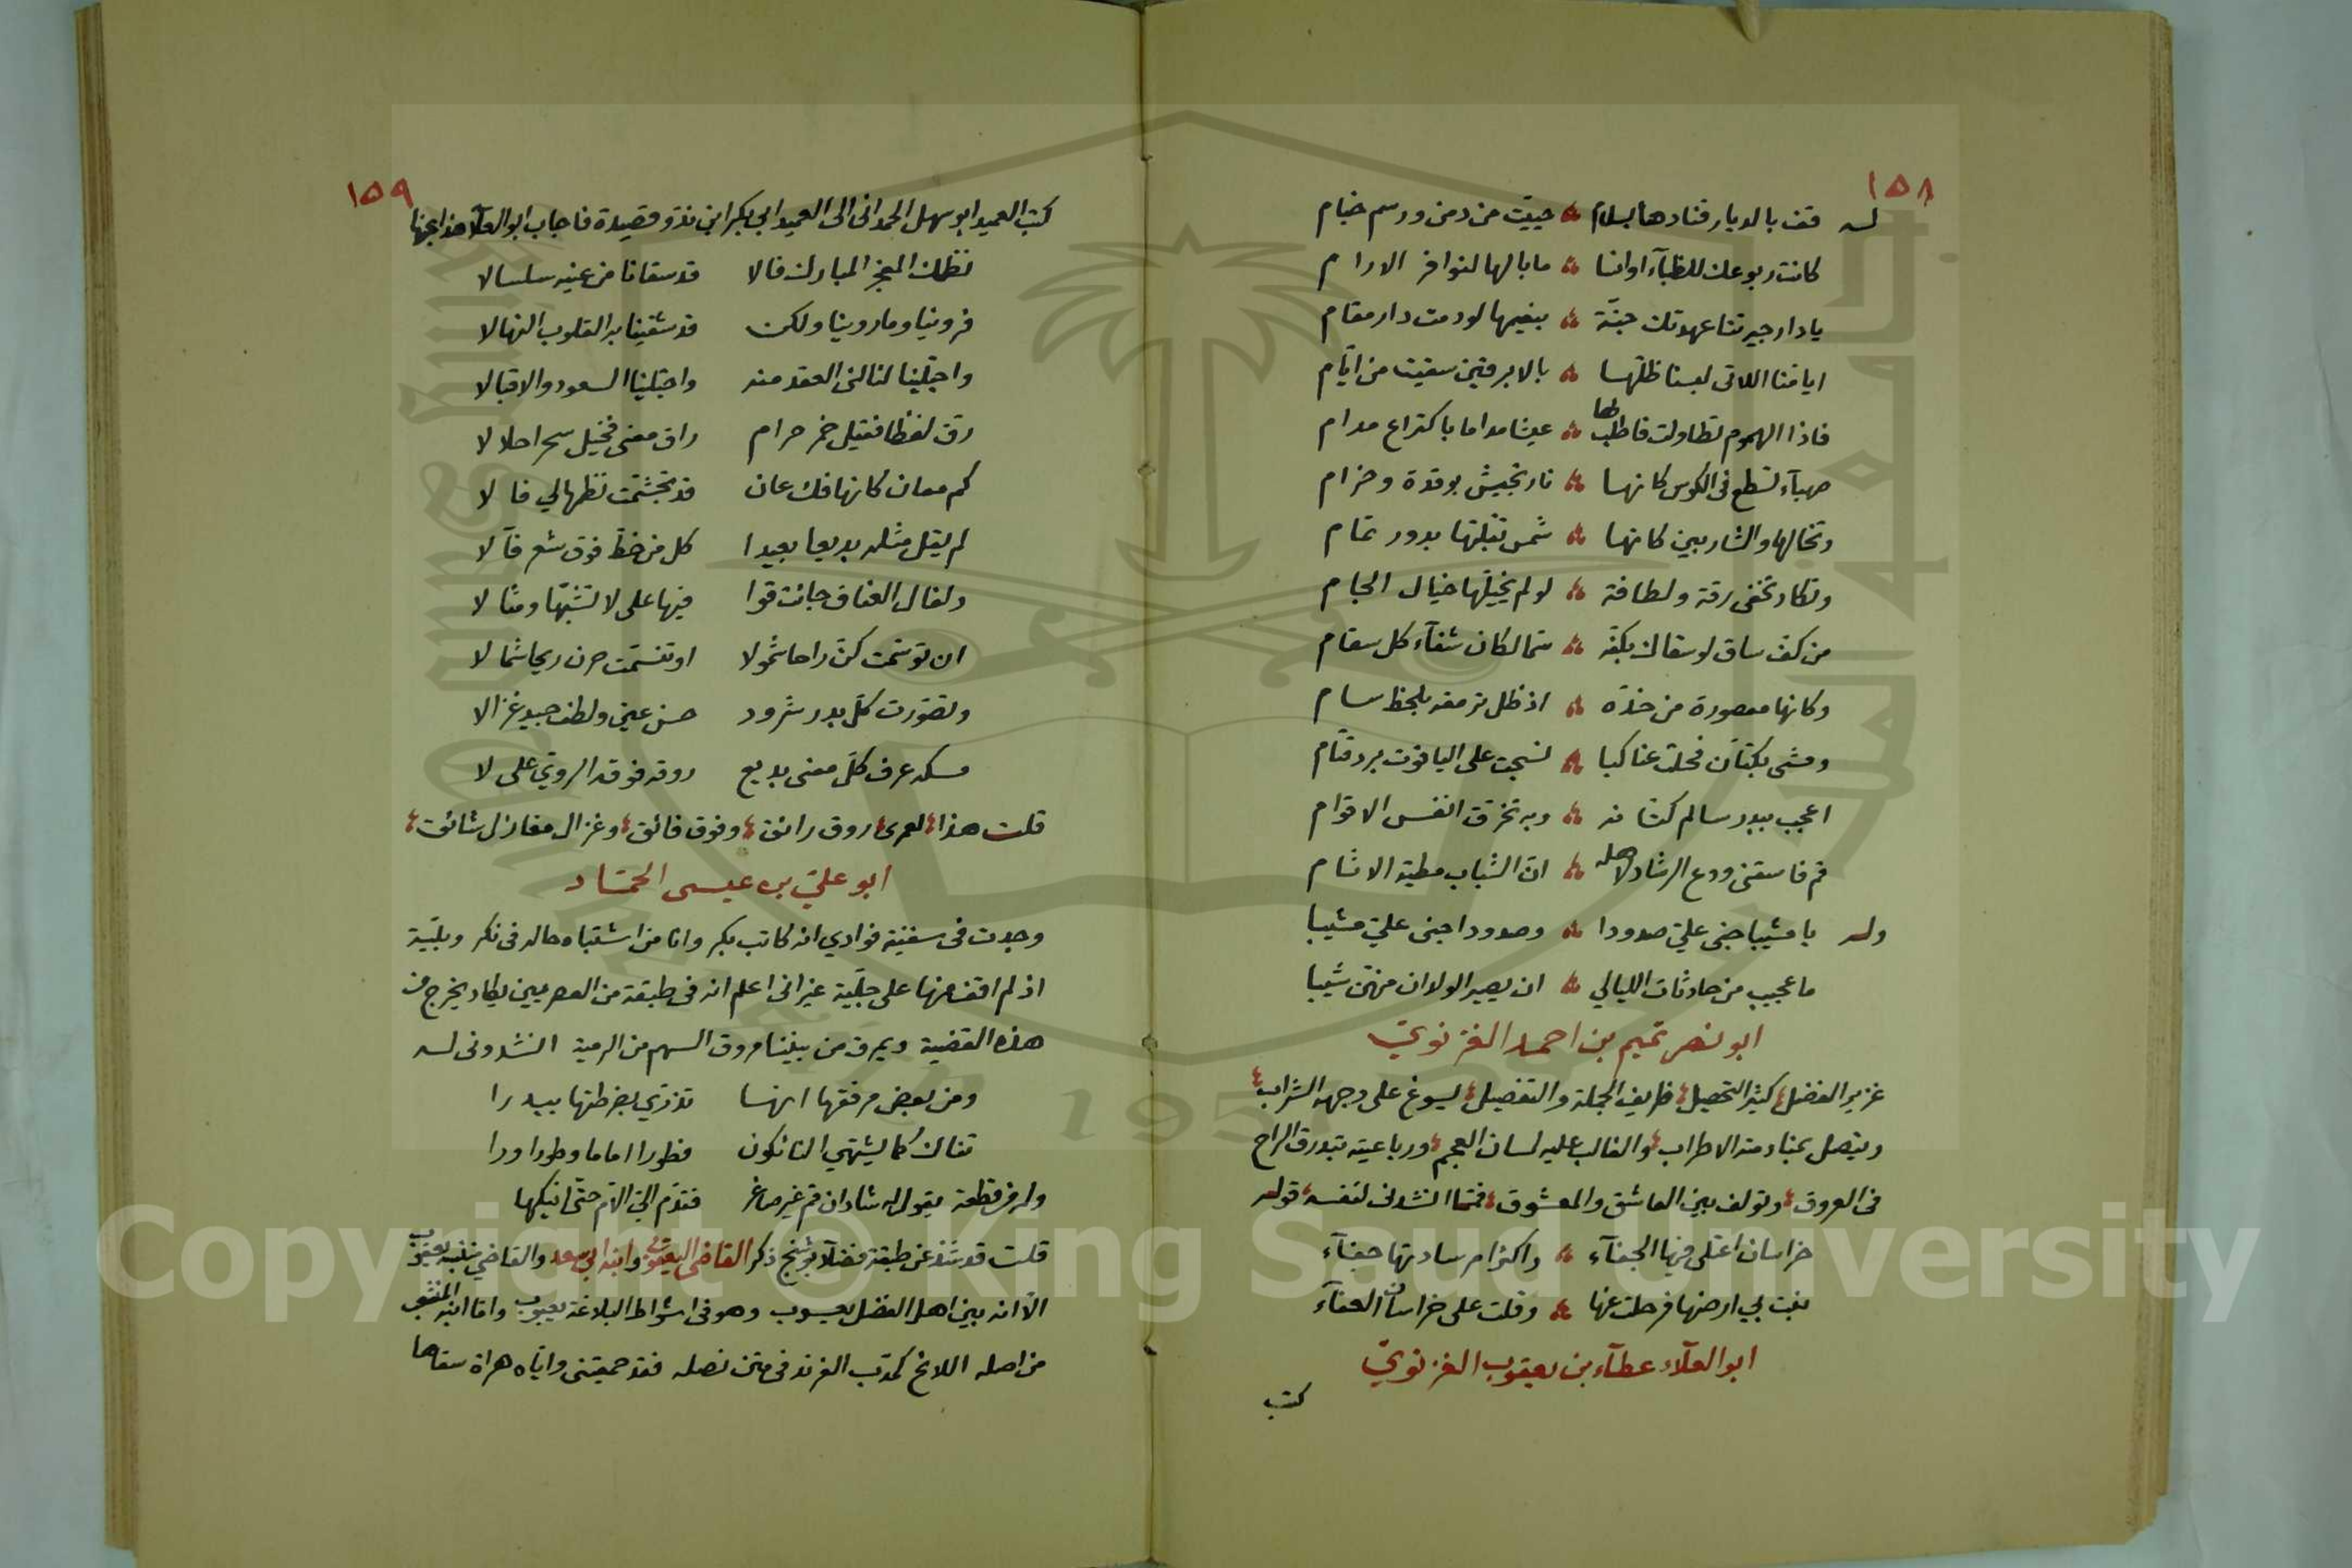 ١٥٨
له قف بالديار فنادها بسلام ؞ حييت من دمن ورسم خيام
كانت ربوعك للظبآء اوانسا ؞ مابالها لنوافر الارام
يادار جيرتنا عهدتك جنة ؞ بنعيمها لو دمت دار مقام
ايامنا اللاتى لبسنا ظلّها ؞ بالابرقين سقيت من ايّام
فاذا الهموم تطاولت فاطلب لها ؞ عيشا مداما باكتراع مدام
صهبآء تسطع فى الكوس كانها ؞ نار تجيش بوقدة وضرام
وتخالها والشاربين كانها ؞ شمس تقبّلها بدور تمام
وتكاد تخفى رقة ولطافة ؞ لو لم يخيّلها خيال الجام
من كف ساق لو سقاك بكفّه ؞ سمّا لكان شفآء كل سقام
وكانها معصورة من خدّه ؞ اذ ظل ترمقه بلحظ سام
ومشى بكتّان فخلت عناكبا ؞ نسجت على الياقوت برد قتام
اعجب ببدر سالم كتّانه ؞ وبه تخرّقت انفس الاقوام
قم فاسقنى ودع الرشاد لاهله ؞ انّ الشباب مطية الاثام
وله يا مشيبا جنى عليّ صدودا ؞ وصدودا جنى عليّ مشيبا
ما عجيب من حادثات الليالي ؞ ان يصير الولدان منهنّ شيبا
ابو نصر تميم بن احمد الغزنويّ
غزير الفضل كثير التحصيل ظريف الجملة والتفصيل يسوغ على وجهه الشراب
ويتصل بمنادمته الاطراب والغالب عليه لسان العجم ورباعيته تبدرق الراح
فى العروق وتولف بين العاشق والمعشوق فمما انشدنى لنفسه قوله
خراسان اعتلى فيها الجفآء ؞ واكرام سادتها جفآء
نبت بي ارضها فرحلت عنها ؞ وقلت على خراسان العفآء
ابو العلآء عطآء بن يعقوب الغزنويّ
كتب
١٥٩
كتب العميد ابو سهل الحمدانى الى العميد ابي بكر ابن قصيدة فاجاب ابو العلآء عنها
نظمك المعجز المبارك فالا قد سقانا من عينه سلسالا
فروينا وما روينا ولكن قد شفينا به القلوب النهالا
واجتلينا لنا لئى العقد منه واجتلينا السعود والاقبالا
رق لفظا فقيل خمر حرام راق معنى فخيل سحرا حلالا
كم معان كانها فك عان قد تجشّمت نظمها لي فالا
لم يقل مثله بديعا بعيدا كل من خط فوق شعر قآلا
ولقال العفاف جانت قوا فيها على لا تشبّها ومثالا
ان توسّمت كنّ راحا شمولا او تنسّمت صرن ريحا شمالا
وتصوّرت كلّ بدر شرود حسن عين ولطف جيد غزالا
مسكه عرف كلّ معنى بديع روقه فوقه الرويّ على لا
قلت هذا لعمرى روق رائق وفوق فائق وغزال مغازل شائق
ابو عليّ بن عيسى الحمّاد
وجدت فى سفينة فوادي انه كاتب بكر وانا من اشتباه حاله فى نكر وبليّة
اذ لم اقف منها على جليّة غير انى اعلم انه فى طبقة من العصريين يكاد يخرج من
هذه القضية ويمرق من بيننا مروق السهم من الرمية انشدونى له
ومن بعض مرفقها انها تذرّي بضرطتها بيدرا
تناك كما يشتهي النائكون فطورا اماما وطورا ورا
وله من قطعة يقول له شادان قم غير صاغر فقدّم اليّ الامّ حتّى انيكها
قلت قد شذ عن طبقة فضلآء بوشنج ذكر القاضى اليعقوبى وابنه ابى سعد والقاضي نسبه يعقوب
الّا انه بين اهل الفضل يعسوب وهو فى اشواط البلاغة يعبوب وامّا ابنه المنشعب
من اصله اللائح كمدبّ الفرند فى متن نصله فقد جمعتنى وايّاه هراة سقاها